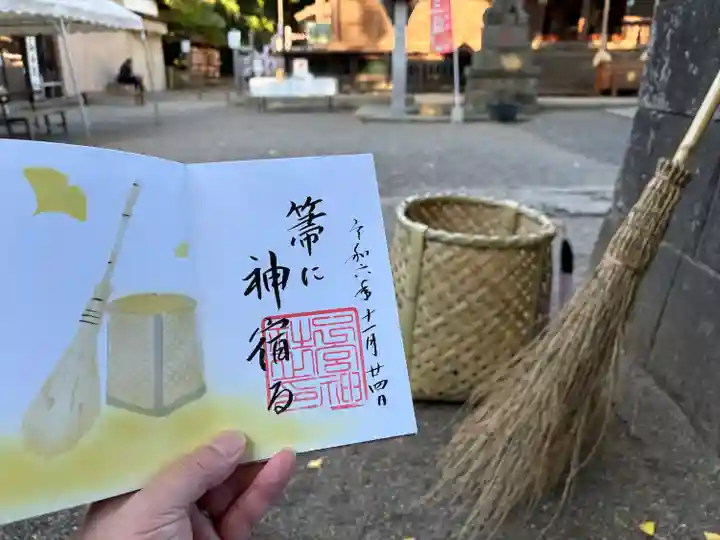 箒に
神宿る
令和六年十一月廿四日